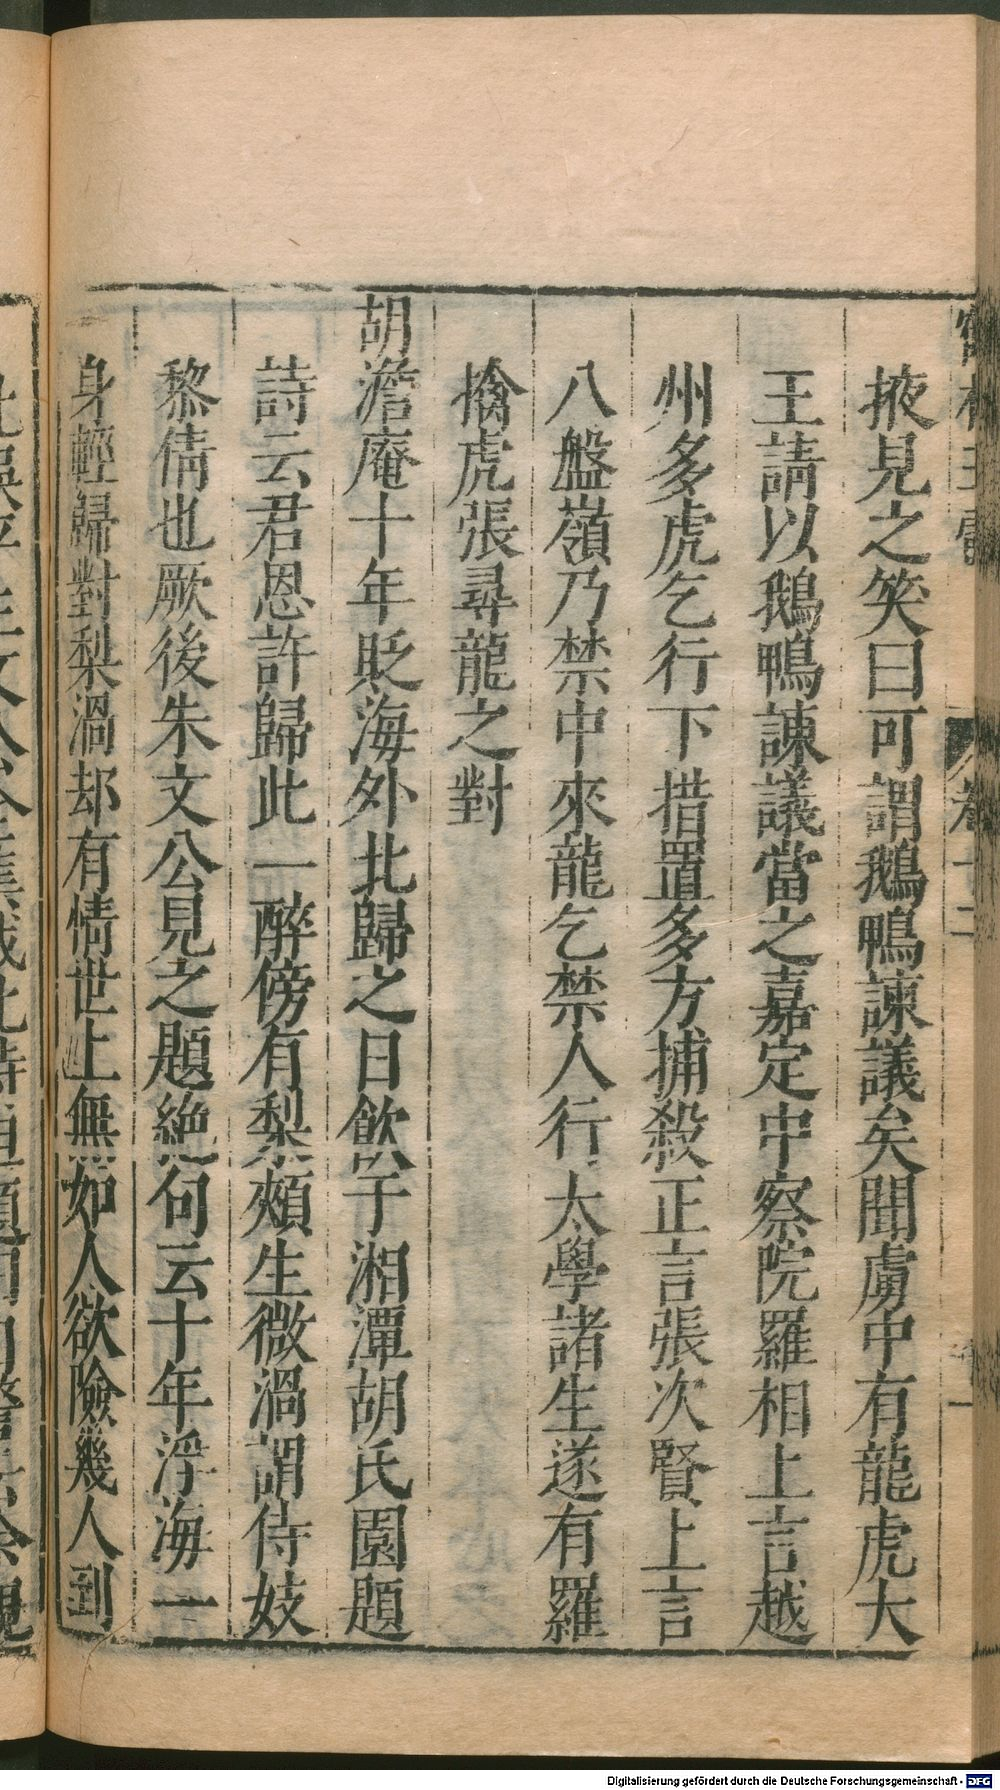 掖見之笑曰可謂鵝鴨諫議矣聞虜中有龍虎大
王請以鵝鴨諫議當之嘉定中察院羅相上言越
州多虎乞行下措置多方捕殺正言張次賢上言
八盤嶺乃禁中來龍乞禁人行太學諸生遂有羅
擒虎張尋龍之對
胡澹庵十年貶海外北歸之日飲于湘潭胡氏園題
詩云君恩許歸此一醉傍有梨頰生微渦謂侍妓
黎倩也厥後朱文公見之題絶句云十年浮海一
身輕歸對梨渦却有情世上無如人欲險幾人到
Digitalisierung gefördert durch die Deutsche Forschungsgemeinschaft - DFG